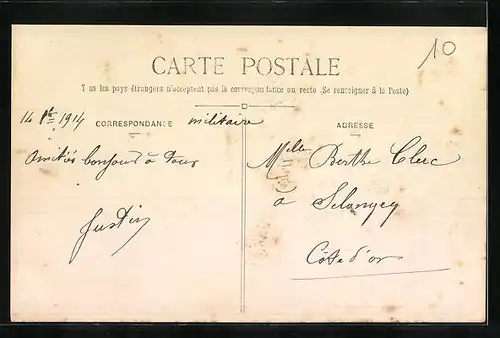 10
CARTE POSTALE
T us les pays étrangers n'acceptent pas la correspondance au recto (Se renseigner à la Poste)
14 1914
CORRESPONDANCE militaire
ADRESSE
Amitiés bonjour à tous
Justin
Melle Berthe Clerc
à Selongey
Côte d'or